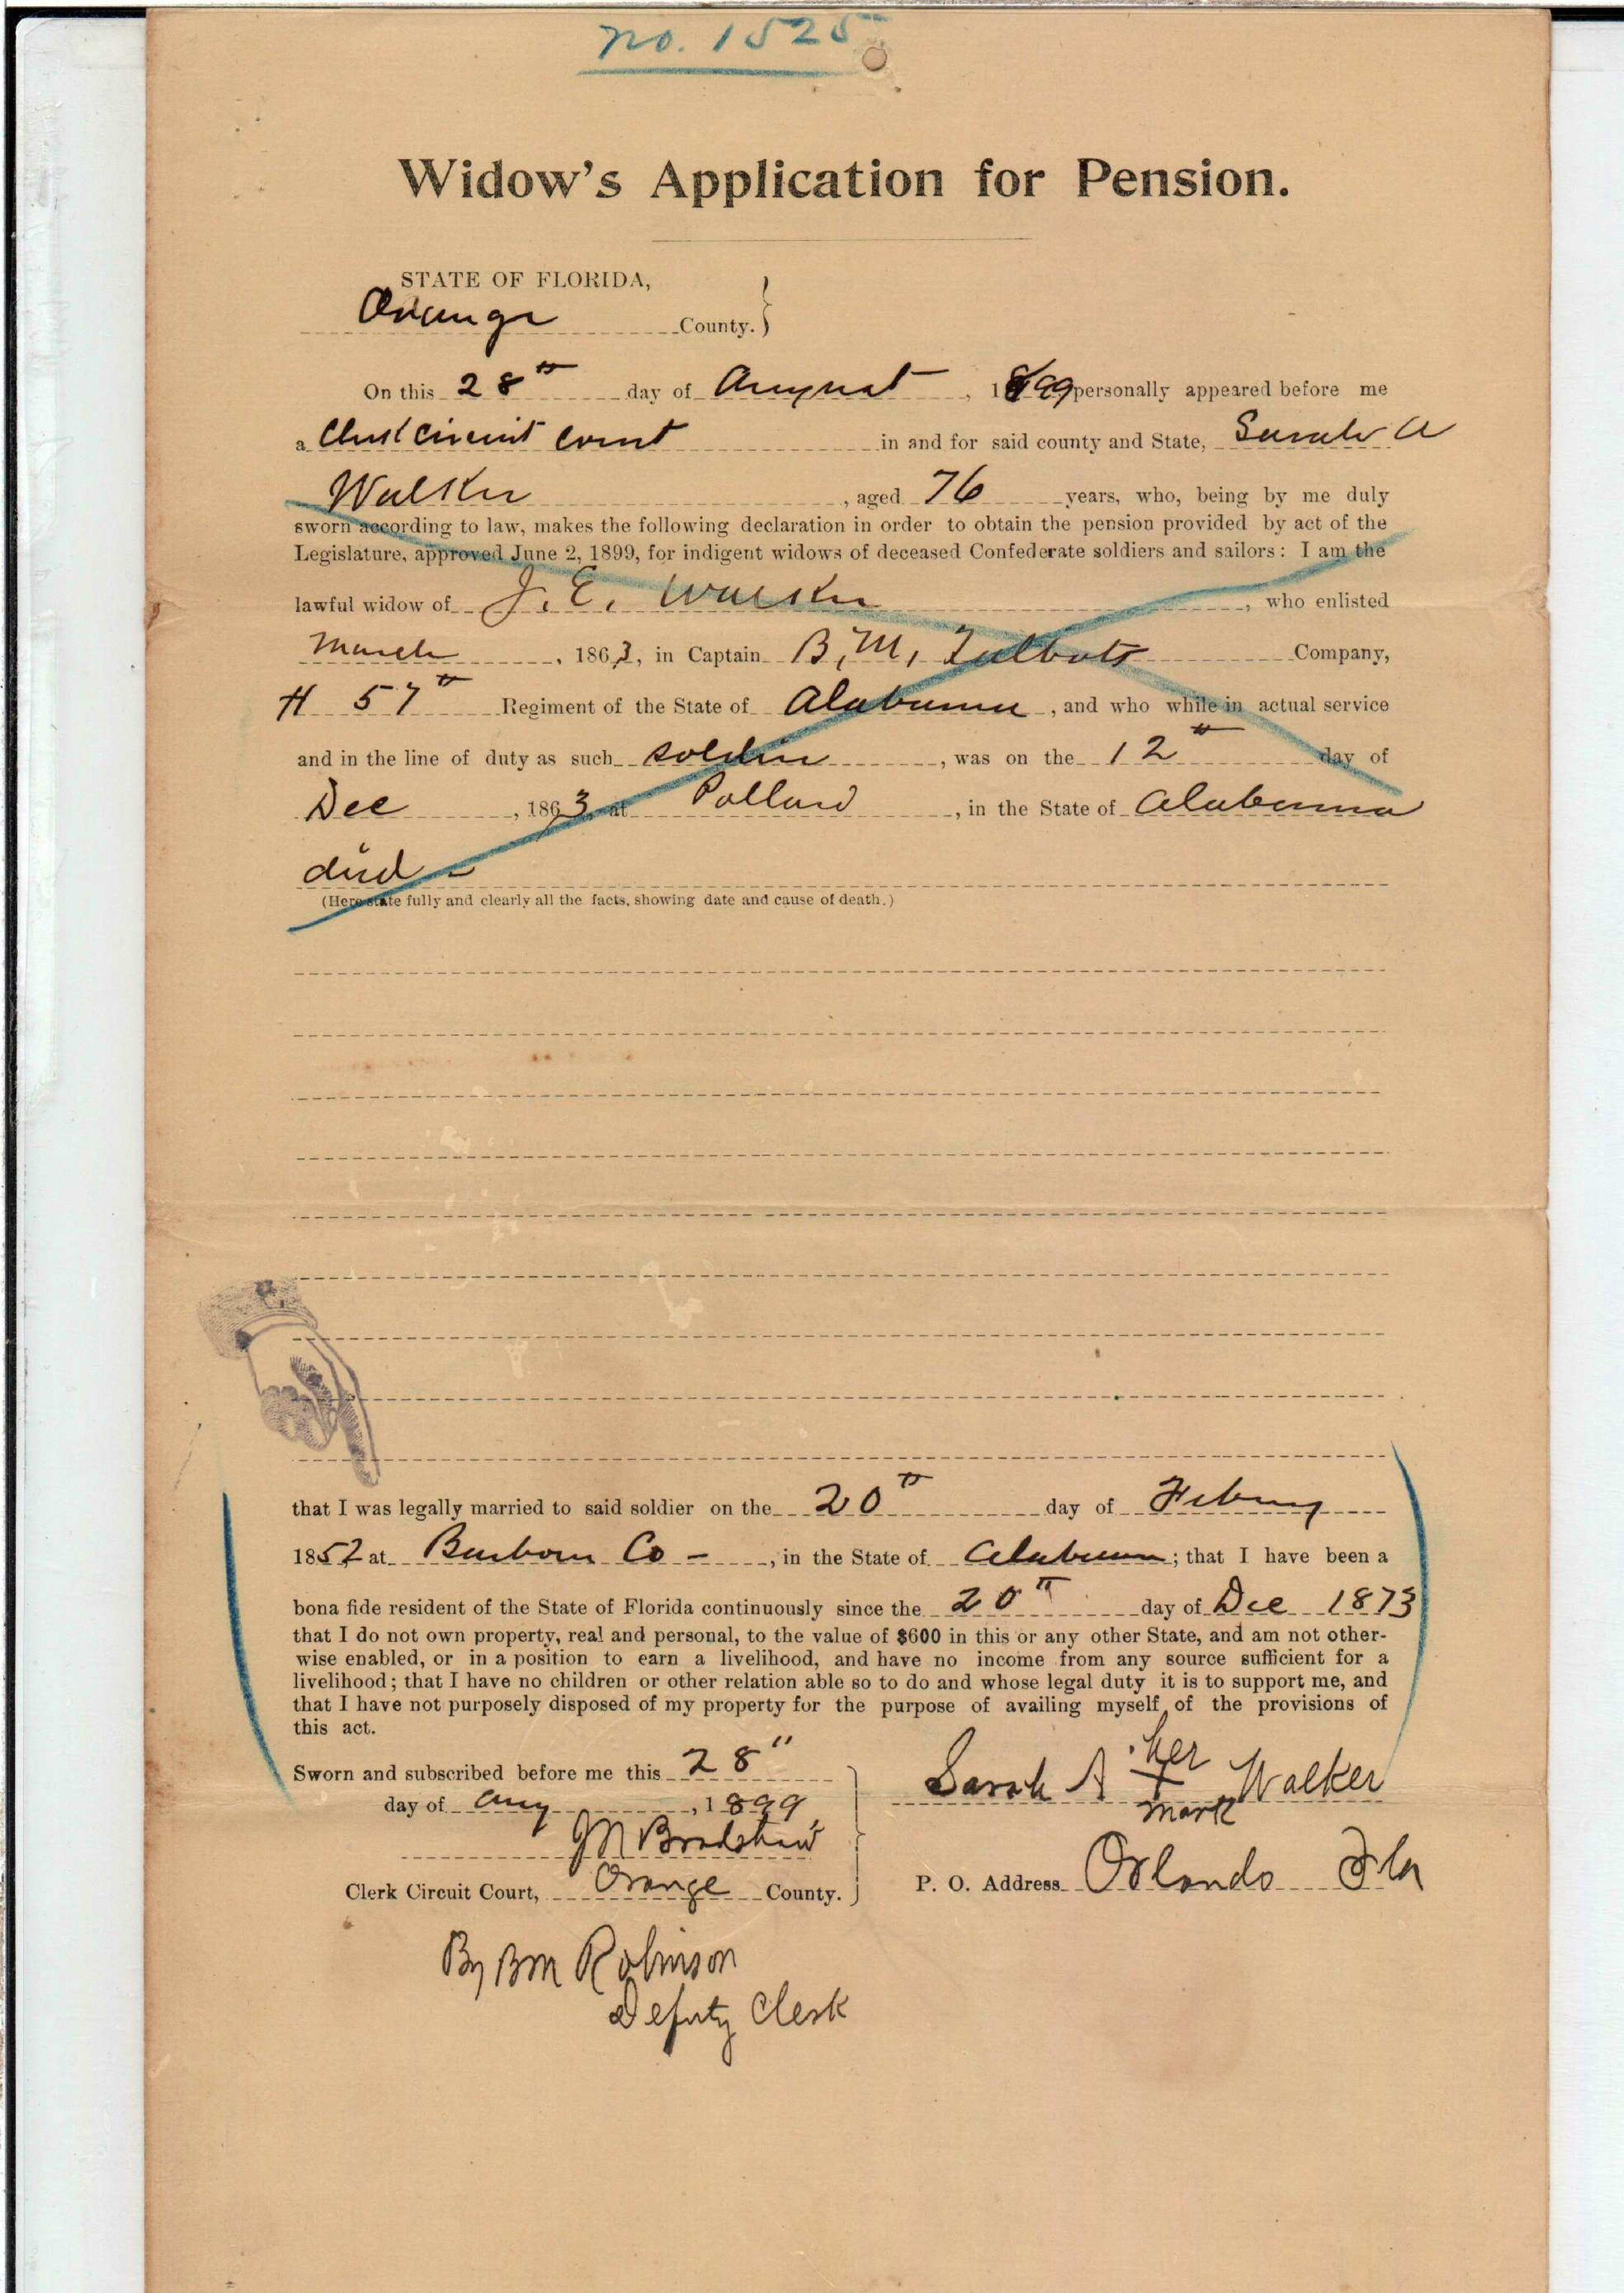 no. 1525
Widow's Application for Pension.
STATE OF FLORIDA,
Orange County.
On this 28th day of August, 1899 personally appeared before me
a Clerk Circuit Court in and for said county and State, Sarah A
Walker, aged 76 years, who, being by me duly
sworn according to law, makes the following declaration in order to obtain the pension provided by act of the
Legislature, approved June 2, 1899, for indigent widows of deceased Confederate soldiers and sailors: I am the
lawful widow of J. E. Walker, who enlisted
March, 1863, in Captain B. M. Talbots Company,
H 57th Regiment of the State of Alabama, and who while in actual service
and in the line of duty as such soldier, was on the 12th day of
Dec, 1863, at Pollard, in the State of Alabama
died -
(Here state fully and clearly all the facts, showing date and cause of death.)
that I was legally married to said soldier on the 20th day of
1852 at Co -, in the State of Alabama; that I have been a
bona fide resident of the State of Florida continuously since the 20th day of Dec 1873
that I do not own property, real and personal, to the value of $600 in this or any other State, and am not other-
wise enabled, or in a position to earn a livelihood, and have no income from any source sufficient for a
livelihood; that I have no children or other relation able so to do and whose legal duty it is to support me, and
that I have not purposely disposed of my property for the purpose of availing myself of the provisions of
this act.
Sworn and subscribed before me this 28"
day of Aug, 1899
J M Bradshaw
Clerk Circuit Court, Orange County.
Sarah A her x mark Walker
P. O. Address Orlando Fla
By B M Robinson
Deputy Clerk